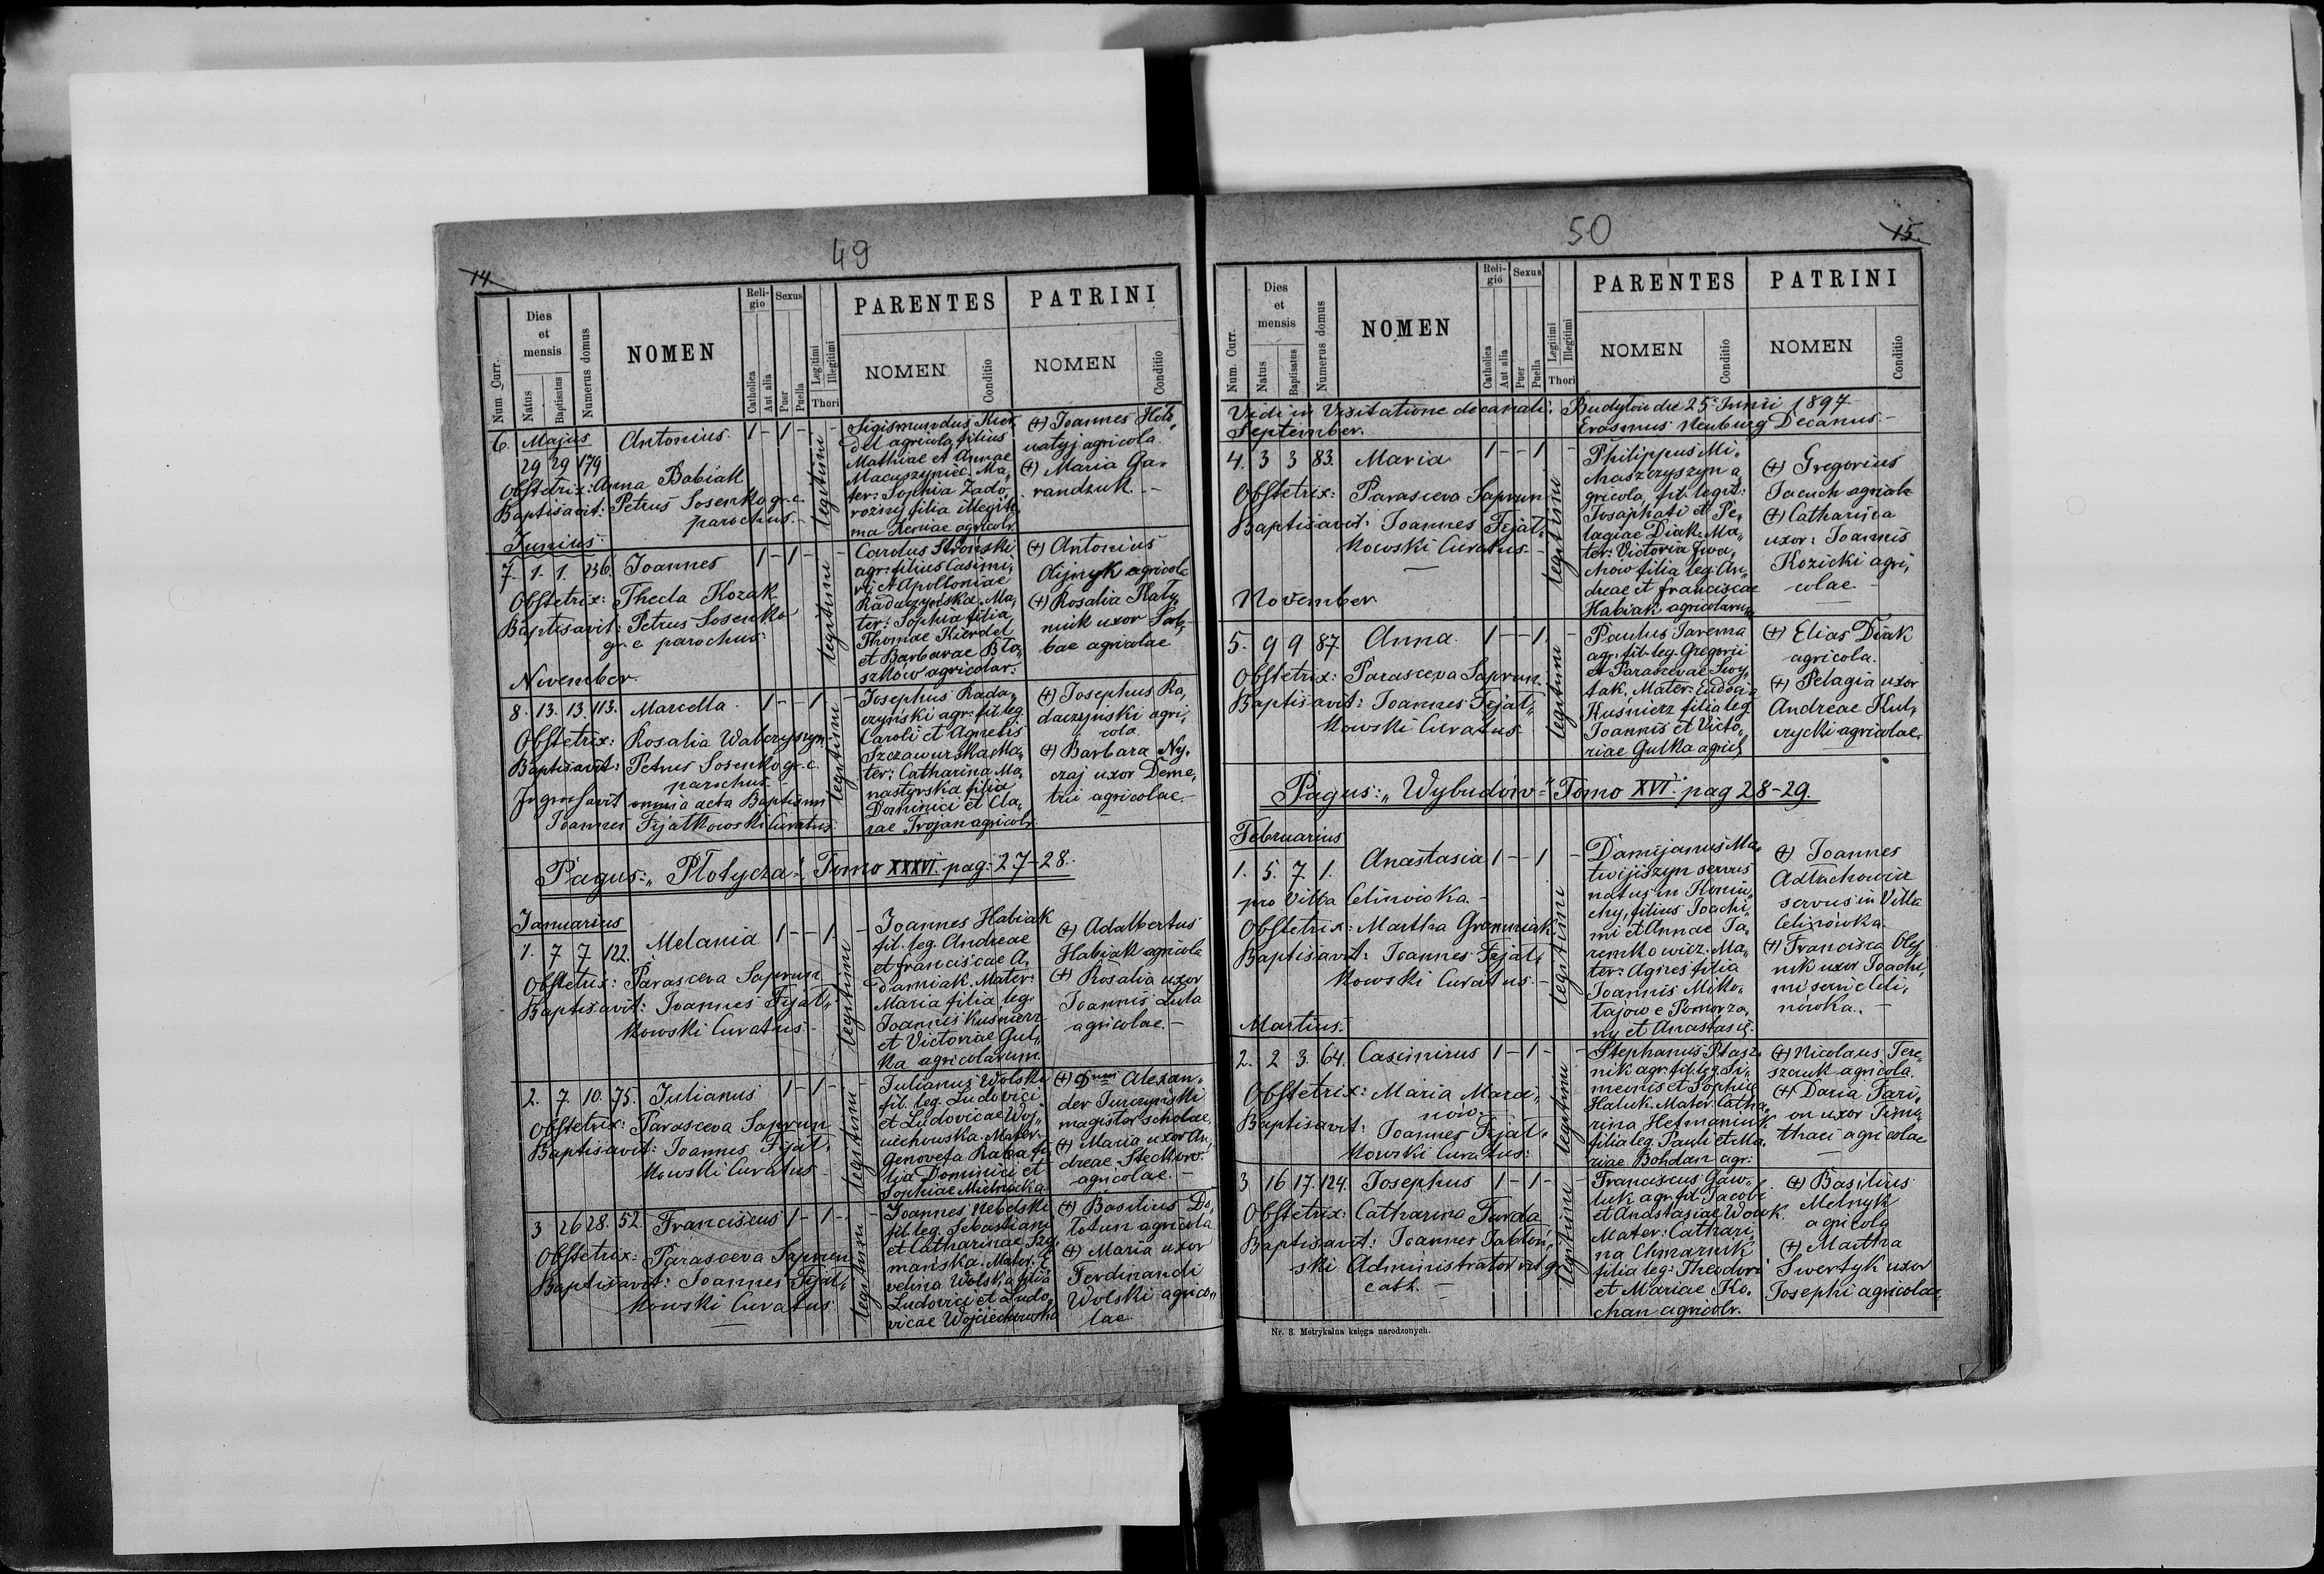 49
14.
Num. Curr.
Dies et mensis
Natus
Baptisatus
Numerus domus
NOMEN
Religio
Catholica
Aut alia
Sexus
Puer
Puella
Legitimi
Illegitimi
Thori
PARENTES
NOMEN
Conditio
PATRINI
NOMEN
Conditio
6. Majus
29 29 179
Antonius. 1 - 1 - -
Obstetrix: Anna Babiak
Baptisavit: Petrus Sosenko gr. c.
parochus.-
legitimi
Sigismundus Kier
del agricola, filius
Mathiae et Annae
Macuszyniec. Ma„
ter: Sophia Zado„
rożnyj filia illegiti„
ma Xeniae agricolr.
(+) Joannes Hoło„
natyj agricola.
(+) Maria Ga„
randzuk. -
Junius.
7. 1. 1. 236. Joannes 1 - 1 - -
Obstetrix: Thecla Kozak
Baptisavit: Petrus Sosenko
gr. c parochus:
legitimi
Carolus Stroński
agr: filius Casimi„
ri et Apolloniae
Radaczyńska. Ma„
ter: Sophia filia
Thomae Kierdel
et Barbarae Bła„
szków agricolar:
(+) Antonius
Olijnyk agricola
(+) Rosalia
nuik uxor
bae agricolae
November.
8. 13. 13. 113. Marcella. 1 - - 1 -
Obstetrix: Rosalia Walczyszyn
Baptisavit: Petrus Sosenko gr. c.
parochus.
Ingrossavit omnia acta Baptismi
Joannes Fijałkowski Curatus.
legitimi
Josephus Rada„
czyński agr: fil. leg.
Caroli et Agnetis
Szczawurska Ma„
ter: Catharina Ma„
nastyrska filia
Dominici et Cla„
rae Trojan agricolr
(+) Josephus Ra„
daczyński agri„
cola
(+) Barbara Ny„
czaj uxor Deme„
trii agricolae.-
Pagus: „Płotycza". Tomo XXXVI. pag: 27-28.
Januarius
1. 7 7 122. Melania 1 - - 1 -
Obstetrix: Parasceva Saprun
Baptisavit: Joannes Fijał„
kowski Curatus.-
legitimi
Joannes Habiak
fil. leg. Andreae
et franciscae A„
damiak. Mater:
Maria filia leg.
Joannis Kuśnierz
et Victoriae Gul„
ka agricolarum.
(+) Adalbertus
Habiak agricola
(+) Rosalia uxor
Joannis Luta
agricolae.-
2. 7. 10. 75. Julianus 1 - 1 - -
Obstetrix: Parasceva Saprun
Baptisavit: Joannes Fijał„
kowski Curatus -
legitimi
Julianus Wolski
fil. leg. Ludovici
et Ludovicae Woj„
ciechowska. Mater.
Genovefa Raba fi„
lia Dominici et
Sophiae Mielnicka
(+) Dnus Alexan„
der Turczyński
magister scholae.
(+) Maria uxor An„
dreae Steckow
agricolae.-
3 26 28. 52. Franciscus 1 - 1 - -
Obstetrix: Parasceva Saprun
Baptisavit: Joannes Fijał„
kowski Curatus:
legitimi
Joannes Nebelski
fil. leg. Sebastiani
et Catharinae Szy„
mańska. Mater: E„
velina Wolska filia
Ludovici et Ludo„
vicae Wojciechowska
(+) Basilius Do„
lotun agricola
(+) Maria uxor
Ferdinandi
Wolski agrico„
lae
50
15.
Num. Curr.
Dies et mensis
Natus
Baptisatus
Numerus domus
NOMEN
Religio
Catholica
Aut alia
Sexus
Puer
Puella
Legitimi
Illegitimi
Thori
PARENTES
NOMEN
Conditio
PATRINI
NOMEN
Conditio
Vidi in Visitatione decanali. Budyłów die 25. Junii 1897
Erasmus Neuburg Decanus.-
September.
4. 3 3 83. Maria 1 - - 1 -
Obstetrix: Parasceva Saprun
Baptisavit: Joannes Fijał„
kowski Curatus.-
legitimi
Philippus Mi„
haszczyszyn a„
gricola, fil. legit:
Josaphati et Pe„
lagiae Diak. Ma„
ter: Victoria Iwa„
chow filia leg. An„
dreae et franciscae
Habiak agricolarum
(+) Gregorius
Jacuch agricola
(+) Catharina
uxor: Joannis
Kozicki agri„
colae
November
5. 9 9 87. Anna. 1 - - 1. -
Obstetrix: Parasceva Saprun.
Baptisavit: Joannes Fijał„
kowski Curatus.
legitimi
Paulus Jarema
agr. fil. leg. Gregorii
et Parascevae Swy„
tak. Mater: Eudocia
Kuśnierz filia leg.
Joannis et Victo„
riae Gulka agricl,
(+) Elias Diak
agricola.
(+) Pelagia uxor
Andreae Kul„
czycki agricolae.
Pagus: „Wybudów" Tomo XVI. pag 28-29.
Februarius
1. 5. 7 1. Anastasia 1 - - 1 -
pro Villa Celinówka.-
Obstetrix: Martha Gramniak
Baptisavit: Joannes Fijał„
kowski Curatus.-
legitimi
Damijanus Ma„
twijiszyn servus
natus in Koniu„
chy, filius Joachi„
mi et Annae Ja„
remkowicz. Ma„
ter: Agnes filia
Joannis Miko„
łajów e Pomorza„
ny et Anastasię.
(+) Joannes
Adlachowicz
servus in Villa
Celinówka
(+) Francisca Olej„
nik uxor Joachi„
mi servi Celi„
nówka. -
Martius.
2. 2 3. 64. Casimirus 1 - 1 - -
Obstetrix: Maria Marci„
now. -
Baptisavit: Joannes Fijał„
kowski Curatus:
legitimi
Stephanus Ptasz„
nik agr. fil. leg. Si„
meonis et Sophiae
Haluk. Mater. Catha„
rina Hetmaniuk
filia leg. Pauli et Ma„
riae Bohdan agr:
(+) Nicolaus Tere„
szczuk agricola.
(+) Daria Fari„
on uxor Timo„
thaei agricolae
3 16 17. 124. Josephus 1 - 1 - -
Obstetrix: Catharina Furda
Baptisavit: Joannes Jabłoń„
ski Administrator rit. gr.
cath. -
legitimi
Franciscus Gaw„
luk agr. fil. Jacobi
et Anastasiae Wouk.
Mater: Cathari„
na Chmarnik
filia leg: Theodori
et Mariae Ko„
chan agricolr.
(+) Basilius
Melnyk
agricola
(+) Martha
Swertyk uxor
Josephi agricolae
Nr. 3. Metrykalna księga narodzonych.